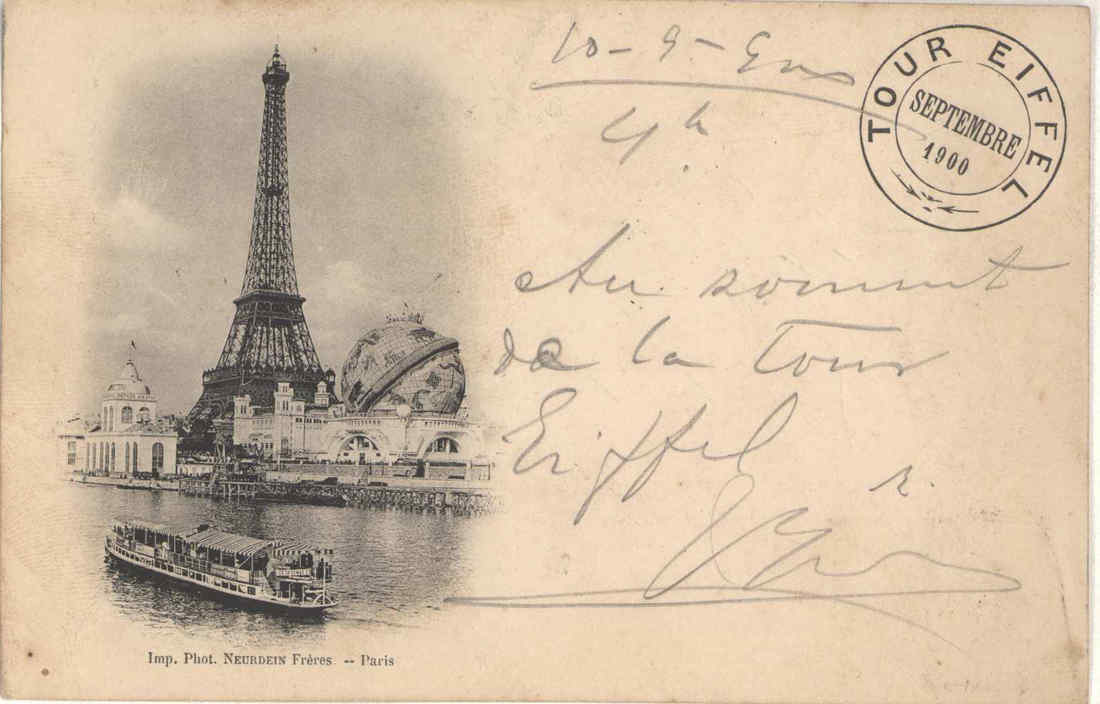 10-9-
4h
TOUR EIFFEL
SEPTEMBRE
1900
Au sommet
de la Tour
Eiffel
Imp. Phot. NEURDEIN Frères -- Paris